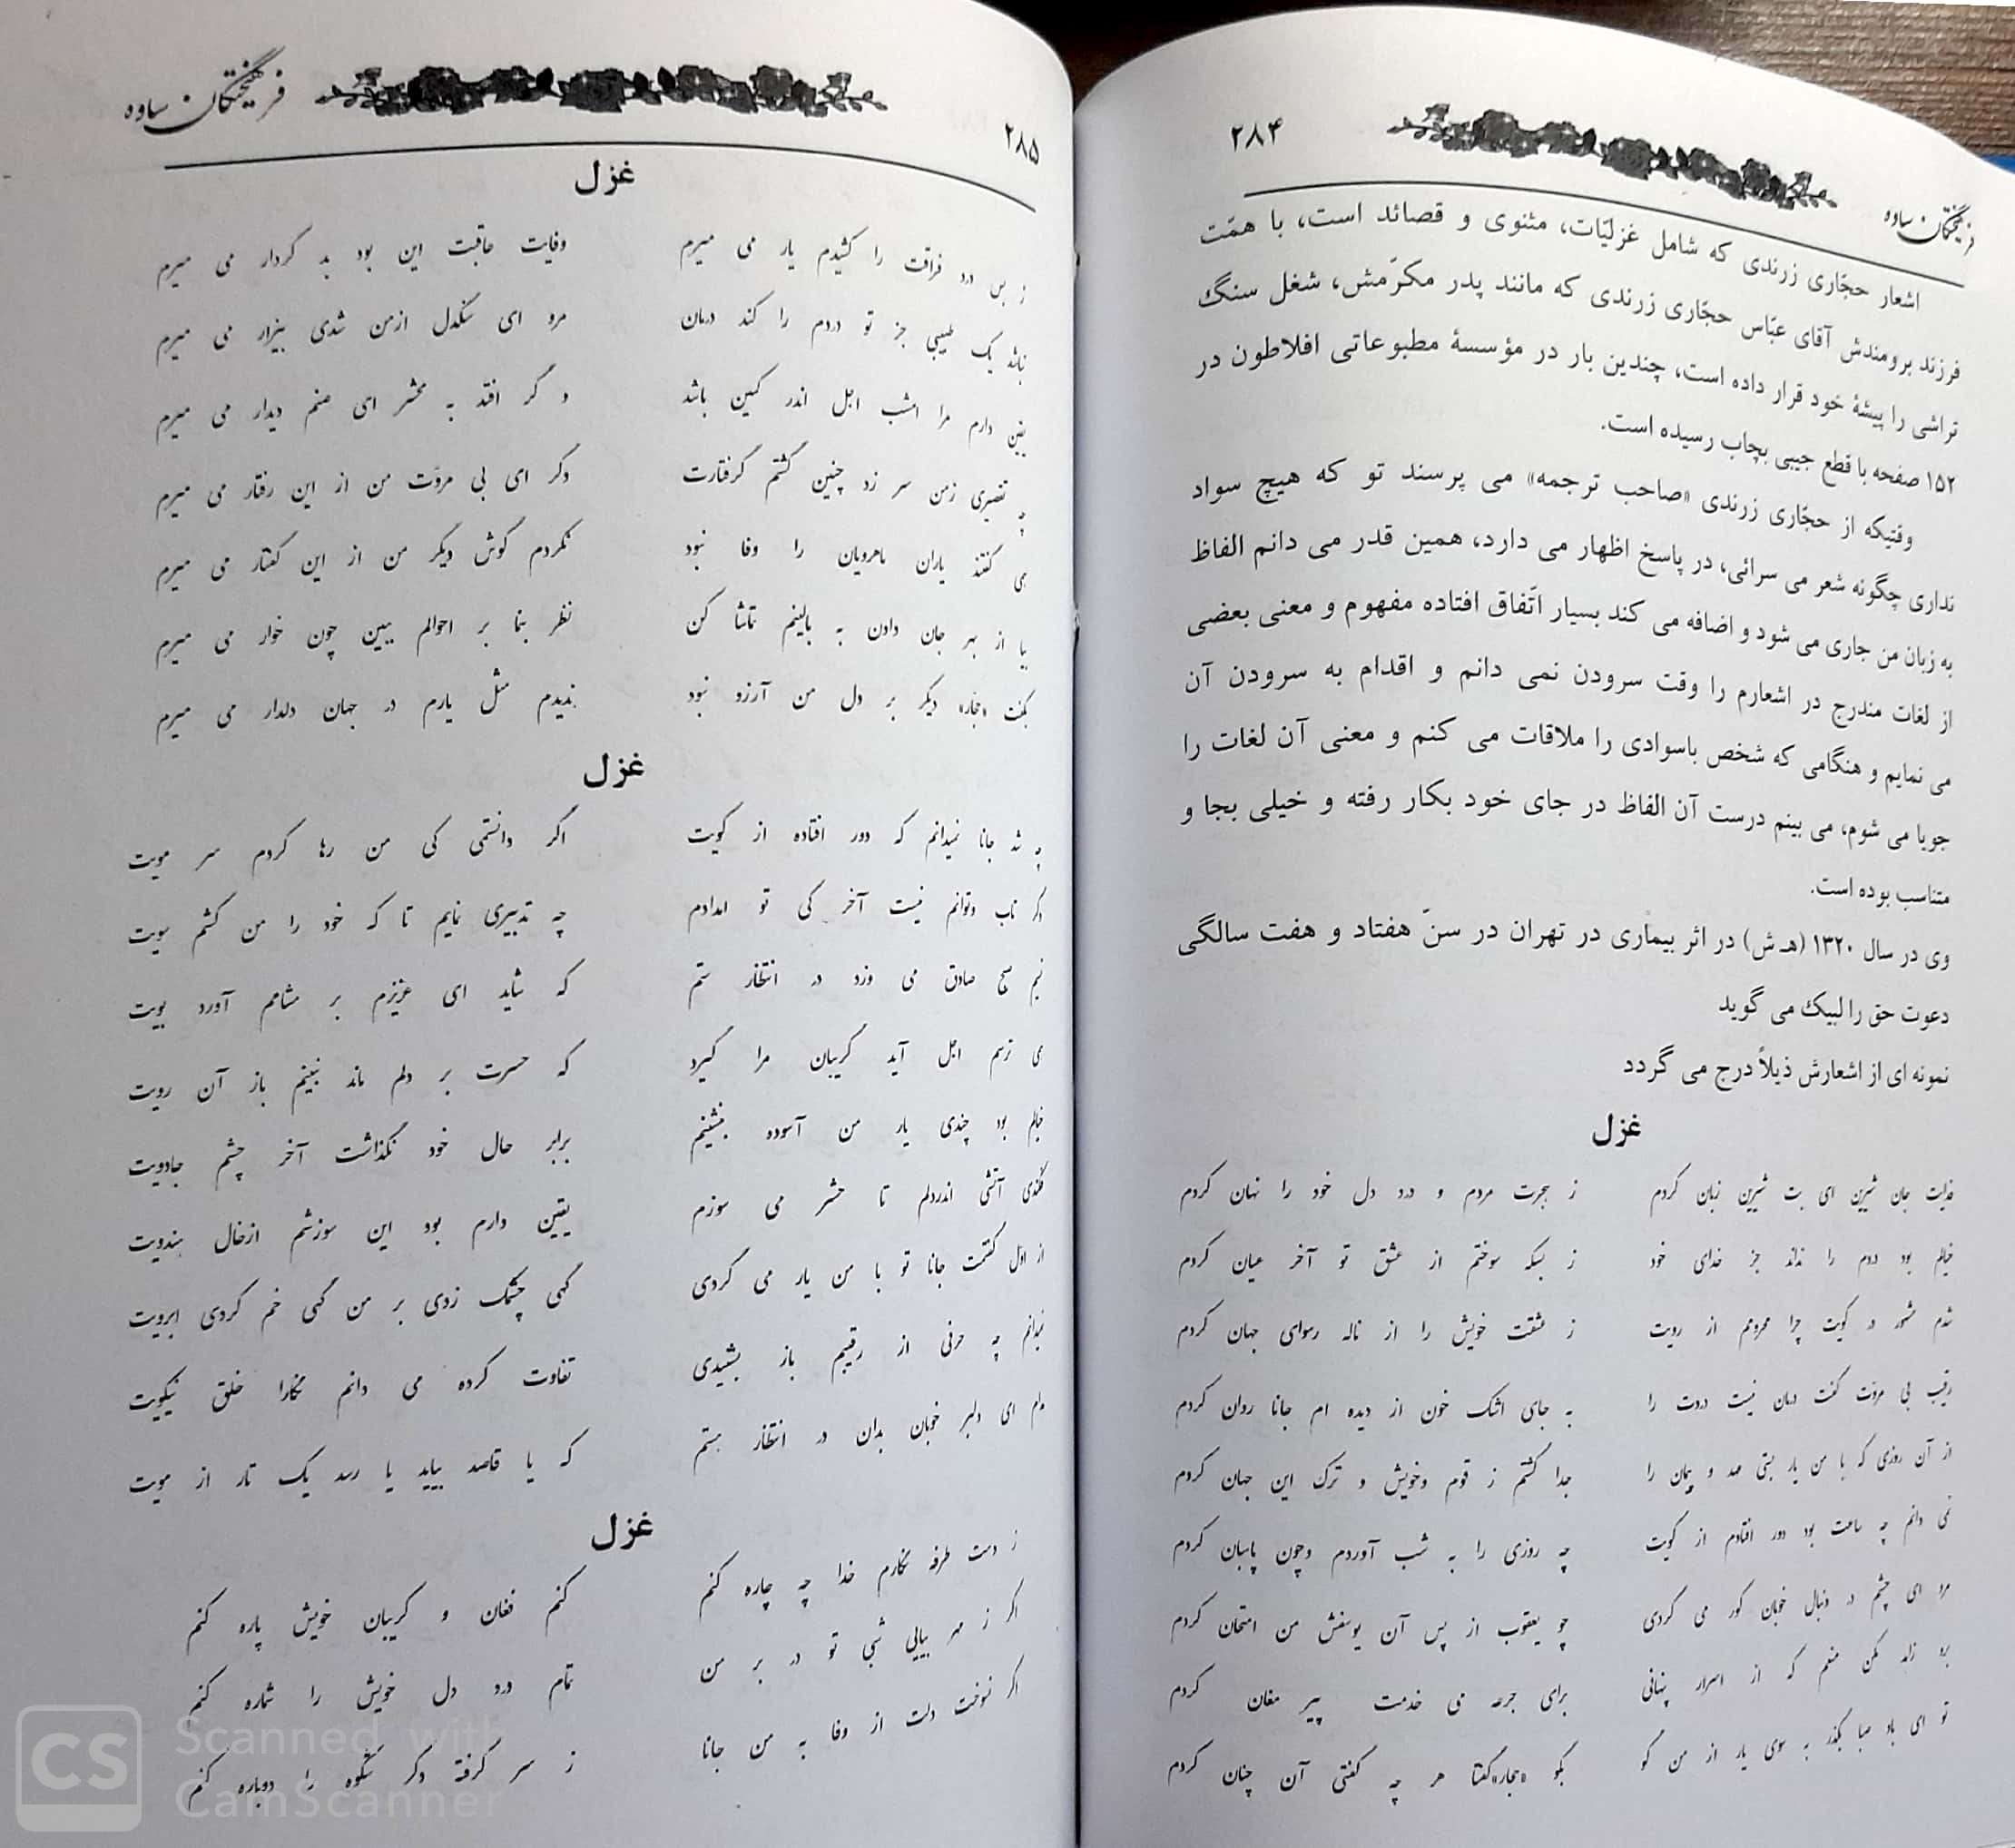 فرهیختگان ساوه
۲۸۴
اشعار حجّاری زرندی که شامل غزلیّات، مثنوی و قصائد است، با همّت
فرزند برومندش آقای عبّاس حجّاری زرندی که مانند پدر مکرّمش، شغل سنگ
تراشی را پیشهٔ خود قرار داده است، چندین بار در مؤسسهٔ مطبوعاتی افلاطون در
۱۵۲ صفحه با قطع جیبی بچاپ رسیده است.
وقتیکه از حجّاری زرندی «صاحب ترجمه» می پرسند تو که هیچ سواد
نداری چگونه شعر می سرائی، در پاسخ اظهار می دارد، همین قدر می دانم الفاظ
به زبان من جاری می شود و اضافه می کند بسیار اتّفاق افتاده مفهوم و معنی بعضی
از لغات مندرج در اشعارم را وقت سرودن نمی دانم و اقدام به سرودن آن
می نمایم و هنگامی که شخص باسوادی را ملاقات می کنم و معنی آن لغات را
جویا می شوم، می بینم درست آن الفاظ در جای خود بکار رفته و خیلی بجا و
متناسب بوده است.
وی در سال ۱۳۲۰ (هـ ش) در اثر بیماری در تهران در سنّ هفتاد و هفت سالگی
دعوت حق را لبیک می گوید
نمونه ای از اشعارش ذیلاً درج می گردد
غزل
فدایت جان شیرین ای بت شیرین زبان کردم ز هجرت مردم و درد دل خود را نهان کردم
خیالم بود دردم را نداند جز خدای خود ز بسکه سوختم از عشق تو آخر عیان کردم
شدم مشهور در کویت چرا محرومم از رویت ز عشقت خویش را از ناله رسوای جهان کردم
رقیب بی مروّت گفت درمان نیست دردت را به جای اشک خون از دیده ام جانا روان کردم
از آن روزی که با من یار بستی عهد و پیمان را جدا گشتم ز قوم وخویش و ترک این جهان کردم
نمی دانم چه ساعت بود دور افتادم از کویت چه روزی را به شب آوردم وچون پاسبان کردم
مرو ای چشم در دنبال خوبان کور می گردی چو یعقوب از پس آن یوسفش من امتحان کردم
برو زاهد مکن منعم که از اسرار پنهانی برای جرعه می خدمت پیر مغان کردم
تو ای باد صبا بگذر به سوی یار از من گو بگو «حجار»گفتا هر چه گفتی آن چنان کردم
فرهیختگان ساوه
۲۸۵
غزل
ز بس درد فراقت را کشیدم یار می میرم وفایت عاقبت این بود بد کردار می میرم
نباشد یک طبیبی جز تو دردم را کند درمان مرو ای سنگدل ازمن شدی بیزار می میرم
یقین دارم مرا امشب اجل اندر کمین باشد و گر افتد به محشر ای صنم دیدار می میرم
چه تقصیری زمن سر زد چنین گشتم گرفتارت دگر ای بی مروّت من از این رفتار می میرم
می گفتند یاران ماهرویان را وفا نبود نکردم گوش دیگر من از این گفتار می میرم
بیا از بهر جان دادن به بالینم تماشا کن نظر بنما بر احوالم ببین چون خوار می میرم
بگفت «حجّار» دیگر بر دل من آرزو نبود ندیدم مثل یارم در جهان دلدار می میرم
غزل
چه شد جانا نمیدانم که دور افتاده از کویت اگر دانستمی کی من رها کردم سر مویت
دگر تاب وتوانم نیست آخر کی تو امدادم چه تدبیری نمایم تا که خود را من کشم سویت
نسیم صبح صادق می وزد در انتظار ستم که شاید ای عزیزم بر مشامم آورد بویت
می ترسم اجل آید گریبان مرا گیرد که حسرت بر دلم ماند نبینم باز آن رویت
خیالم بود چندی یار من آسوده بنشینم برابر حال خود نگذاشت آخر چشم جادویت
فکندی آتشی اندردلم تا حشر می سوزم یقین دارم بود این سوزشم ازخال هندویت
از اوّل گفتمت جانا تو با من یار می گردی گهی چشمک زدی بر من گهی خم کردی ابرویت
نمیدانم چه حرفی از رقیبم باز بشنیدی تفاوت کرده می دانم نگارا خلق نیکویت
ای دلبر خوبان بدان در انتظار هستم که یا قاصد بیاید یا رسد یک تار از مویت
غزل
ز دست طرفه نگارم خدا چه چاره کنم کنم فغان و گریبان خویش پاره کنم
اگر ز مهر بیایی شبی تو در بر من تمام درد دل خویش را شماره کنم
اگر نسوخت دلت از وفا به من جانا ز سر گرفته دگر شکوه را دوباره کنم
CS Scanned with
CamScanner